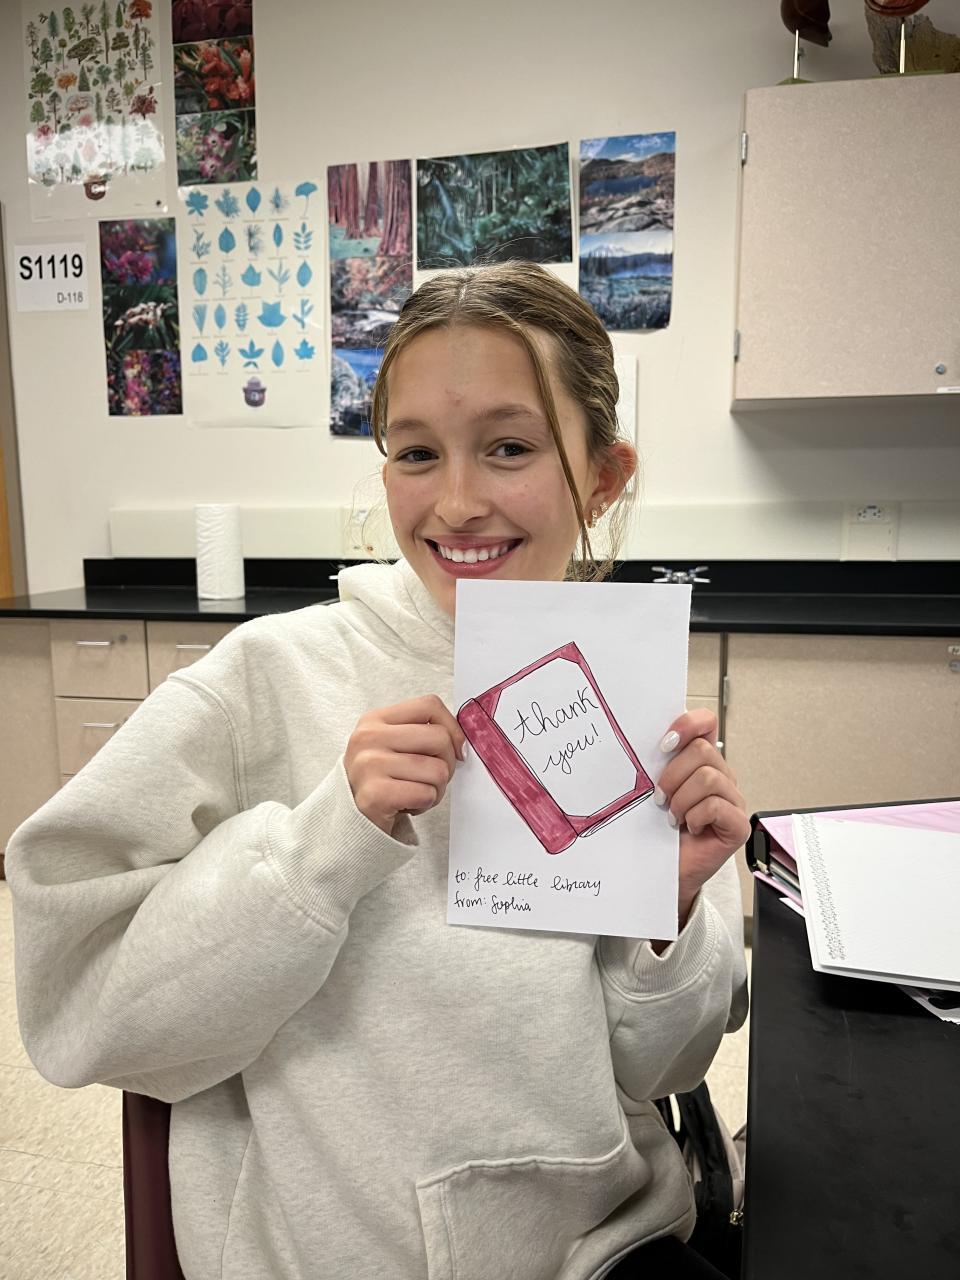 S1119
D-118
thank
you!
to: free little library
from: Sophia